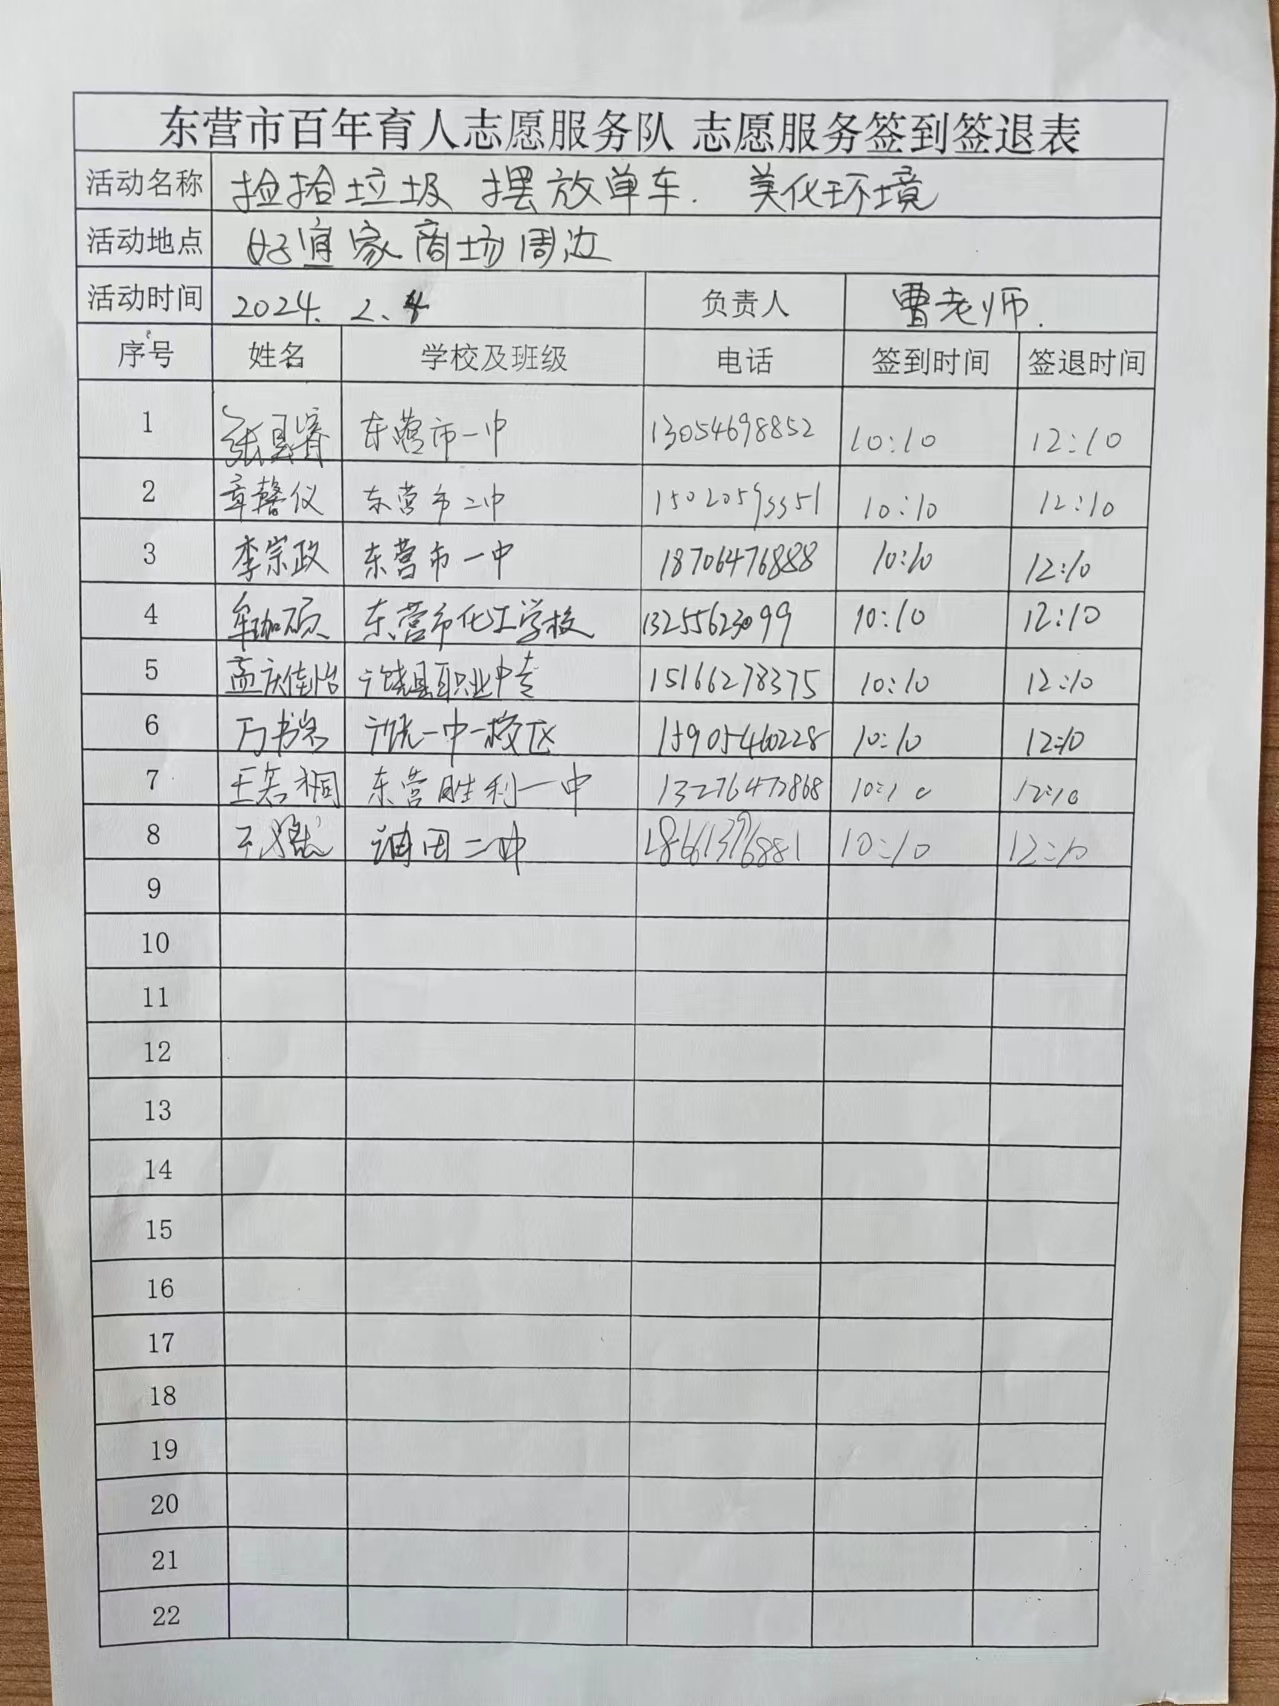 东营市百年育人志愿服务队 志愿服务签到签退表
活动名称 捡拾垃圾 摆放单车. 美化环境
活动地点 好宜家商场周边
活动时间 2024. 2. 4 负责人 曹老师.
序号 姓名 学校及班级 电话 签到时间 签退时间
1 张昱睿 东营市一中 13054698852 10:10 12:10
2 章馨仪 东营市二中 10:10 12:10
3 李宗政 东营市一中 18706476888 10:10 12:10
4 牟珈硕 东营市化工学校 13255623099 10:10 12:10
5 孟庆佳怡 广饶县职业中专 15166278375 10:10 12:10
6 万书岩 广饶一中一校区 15905460228 10:10 12:10
7 王若桐 东营胜利一中 13276472868 10:10 12:10
8 油田二中 18661396881 10:10 12:10
9
10
11
12
13
14
15
16
17
18
19
20
21
22